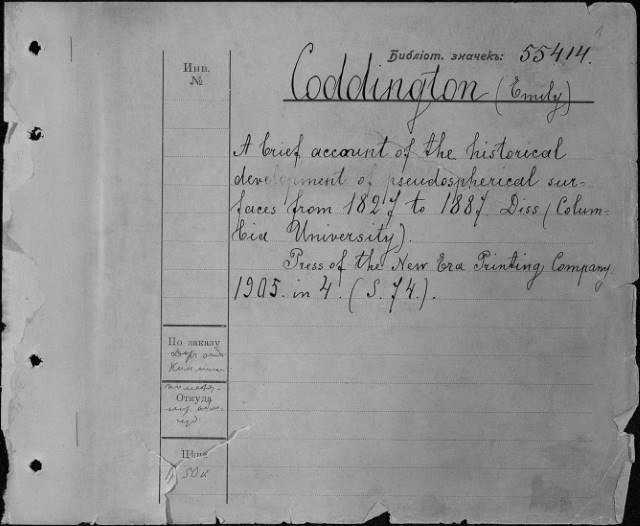 Инв.
№
Библіот. значекъ: 55414.
Coddington (Emily)
A brief account of the historical
development of pseudospherical sur-
faces from 1827 to 1887. Diss (Colum-
bia University).
Press of the New Era Printing Company
1905. in 4. (S. 74.).
По заказу
Откуда
Цѣна
50 к